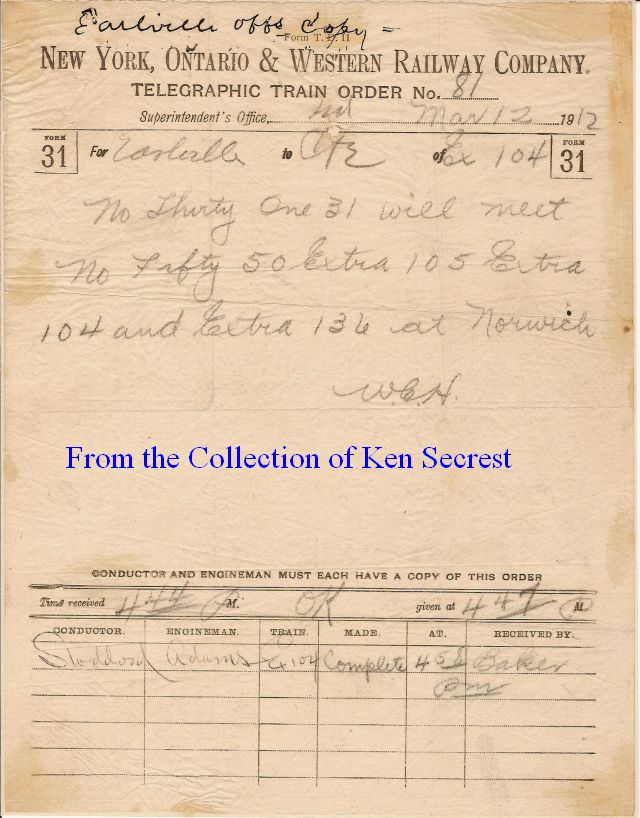 Earlville offs Copy =
Form T. D. 11
NEW YORK, ONTARIO & WESTERN RAILWAY COMPANY.
TELEGRAPHIC TRAIN ORDER No. 81
Superintendent's Office, Nd Mar 12 1912
FORM 31 For Earlville to C&E of Ex 104 FORM 31
No Thirty One 31 will meet
No Fifty 50 Extra 105 Extra
104 and Extra 136 at Norwich
W.E.H.
From the Collection of Ken Secrest
CONDUCTOR AND ENGINEMAN MUST EACH HAVE A COPY OF THIS ORDER
Time received 444 P M. OK given at 447 P M
CONDUCTOR. ENGINEMAN. TRAIN. MADE. AT. RECEIVED BY.
Stoddard Adams Ex 104 Complete 458 Baker
Pm